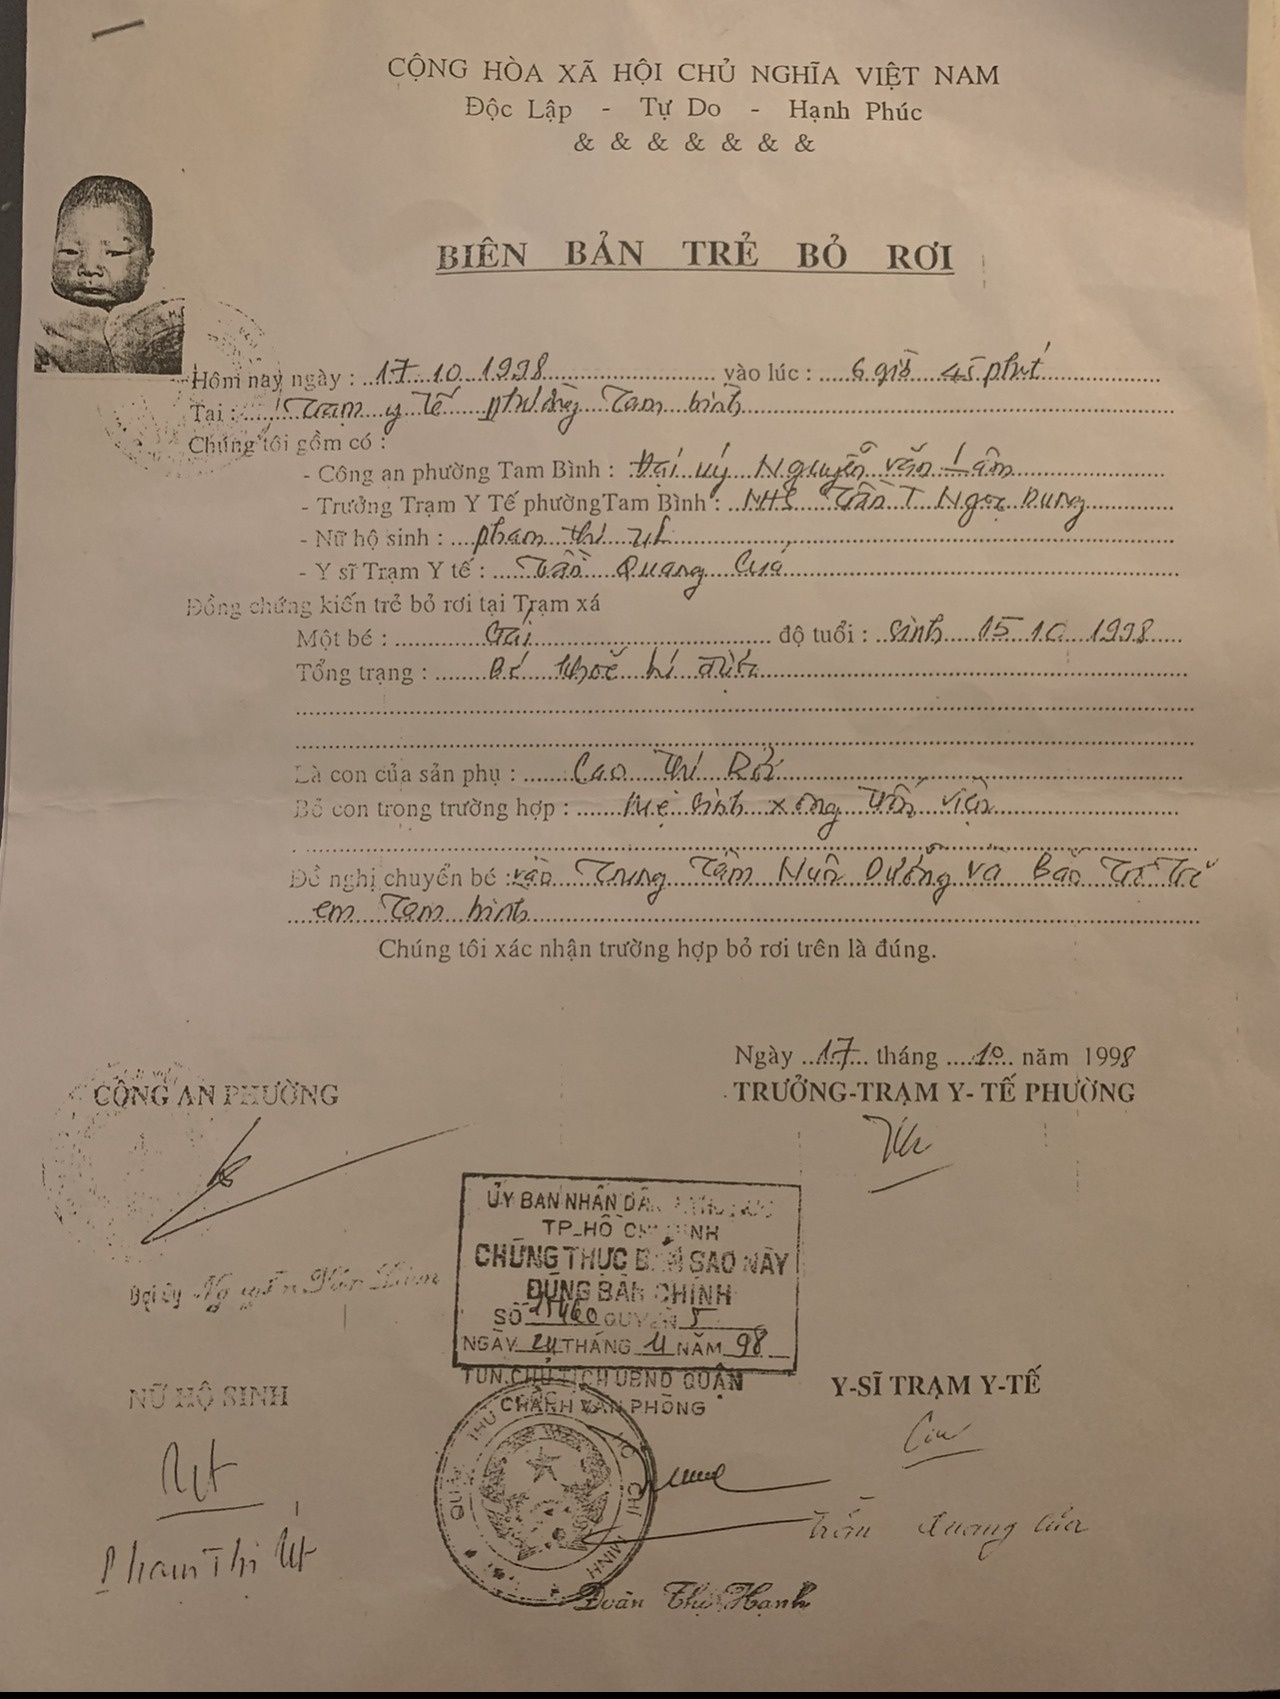 CỘNG HÒA XÃ HỘI CHỦ NGHĨA VIỆT NAM
Độc Lập - Tự Do - Hạnh Phúc
& & & & & & &
BIÊN BẢN TRẺ BỎ RƠI
Hôm nay ngày : 17.10.1998 vào lúc : 6 giờ 45 phút
Tại : Trạm y tế phường Tam bình
Chúng tôi gồm có :
- Công an phường Tam Bình : Đại úy Nguyễn văn Lâm
- Trưởng Trạm Y Tế phường Tam Bình : NHS Trần T Ngọc Dung
- Nữ hộ sinh : phạm thị út
- Y sĩ Trạm Y tế : Trần Quang Của
Đồng chứng kiến trẻ bỏ rơi tại Trạm xá
Một bé : Gái độ tuổi : sinh 15 10 1998
Tổng trạng : Bé khoẻ
Là con của sản phụ : Cao Thị
Bỏ con trong trường hợp : Mẹ sinh xong trốn viện
Đề nghị chuyển bé : vào Trung Tâm Nuôi Dưỡng và Bảo Trợ Trẻ
em Tam bình
Chúng tôi xác nhận trường hợp bỏ rơi trên là đúng.
Ngày 17 tháng 10 năm 1998
CÔNG AN PHƯỜNG
TRƯỞNG-TRẠM Y- TẾ PHƯỜNG
ỦY BAN NHÂN DÂN
TP-HỒ CHÍ MINH
CHỨNG THỰC BẢN SAO NÀY
ĐÚNG BẢN CHÍNH
SỐ QUYỂN 5
NGÀY 24 THÁNG 11 NĂM 98
Đại úy Nguyễn Văn Lâm
TUN.CHỦ TỊCH UBND QUẬN
CHÁNH VĂN PHÒNG
NỮ HỘ SINH
Y-SĨ TRẠM Y-TẾ
Út
Phạm Thị Út
Trần Quang Của
Đoàn Thị Hạnh